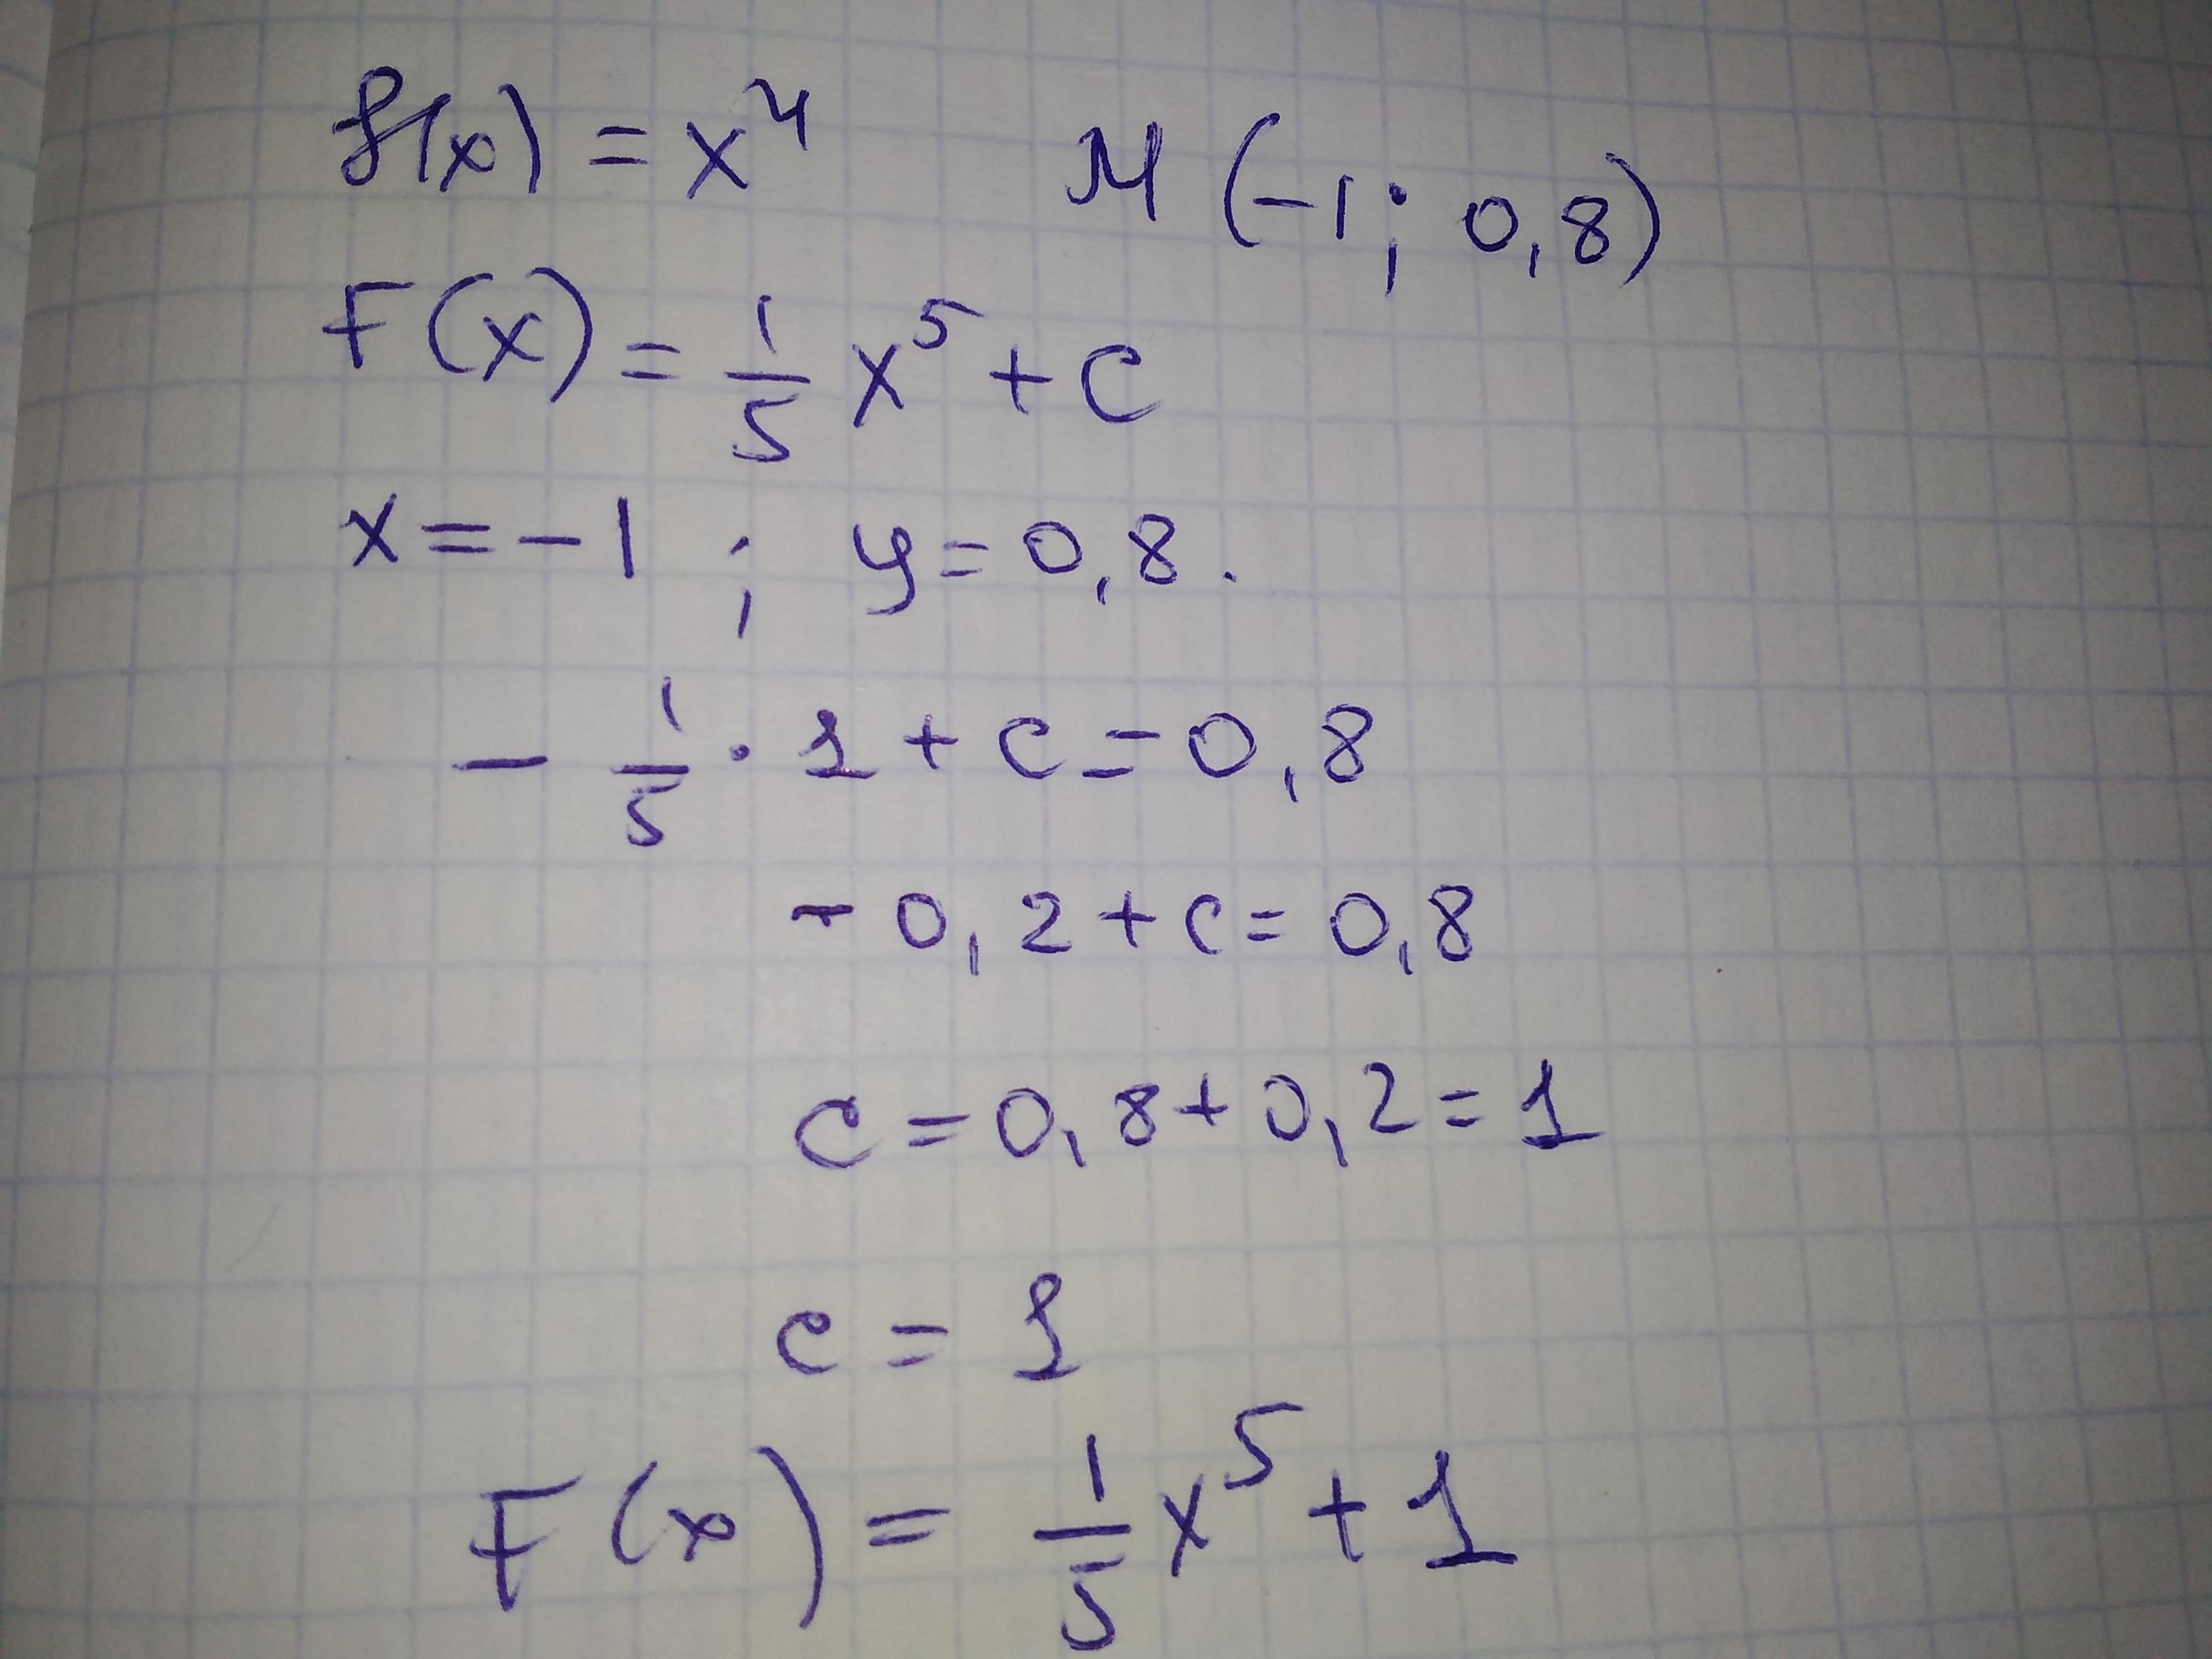 f(x) = x⁴ M (-1; 0,8)
F(x) = 1/5 x⁵ + C
x = -1 ; y = 0,8.
- 1/5 · 1 + c = 0,8
- 0,2 + c = 0,8
c = 0,8 + 0,2 = 1
c = 1
F(x) = 1/5 x⁵ + 1